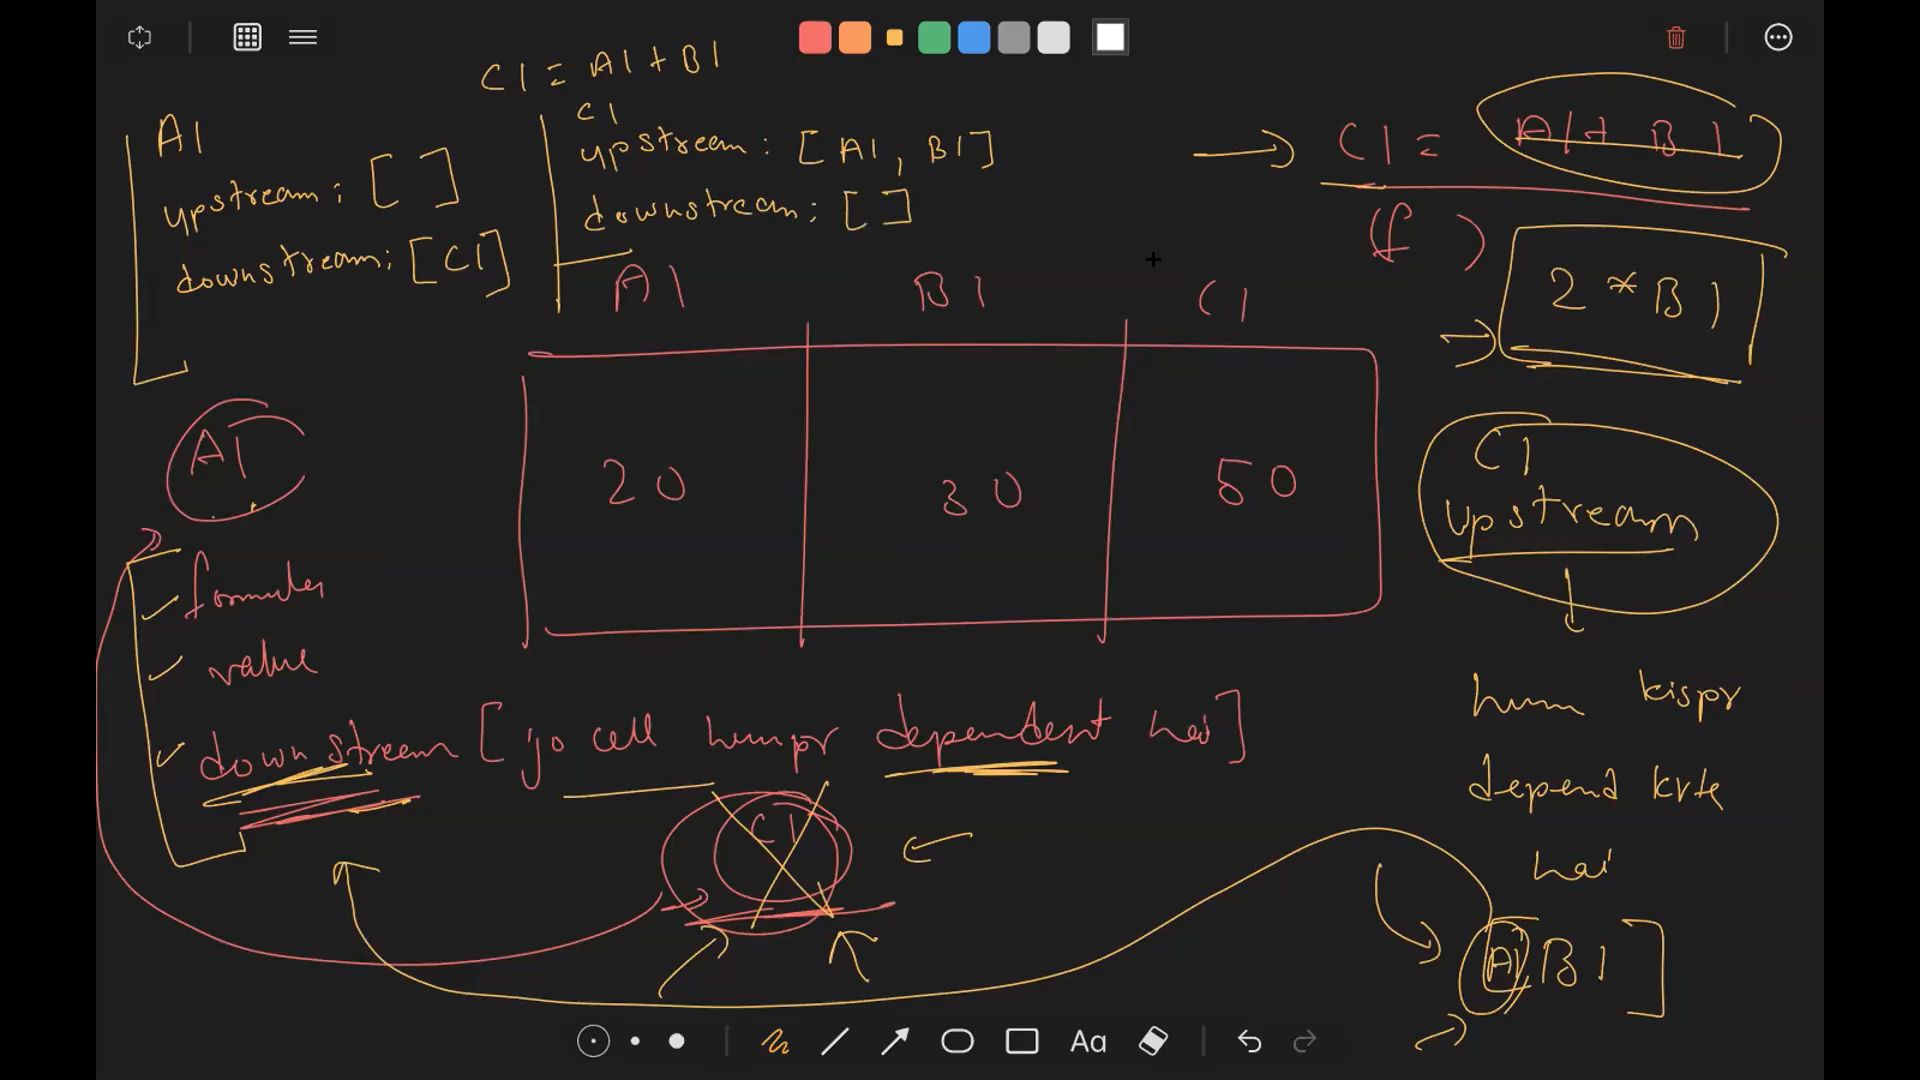 C1 = A1 + B1
A1
upstream : [ ]
downstream : [C1]
C1
upstream : [A1, B1]
downstream : [ ]
C1 = A1 + B1
(f )
2 * B1
A1 B1 C1
20 30 50
A1
formula
value
downstream [jo cell humpr dependent hai]
C1
C1
upstream
hum kispr
depend krte
hai
A1 B1 ]
Aa